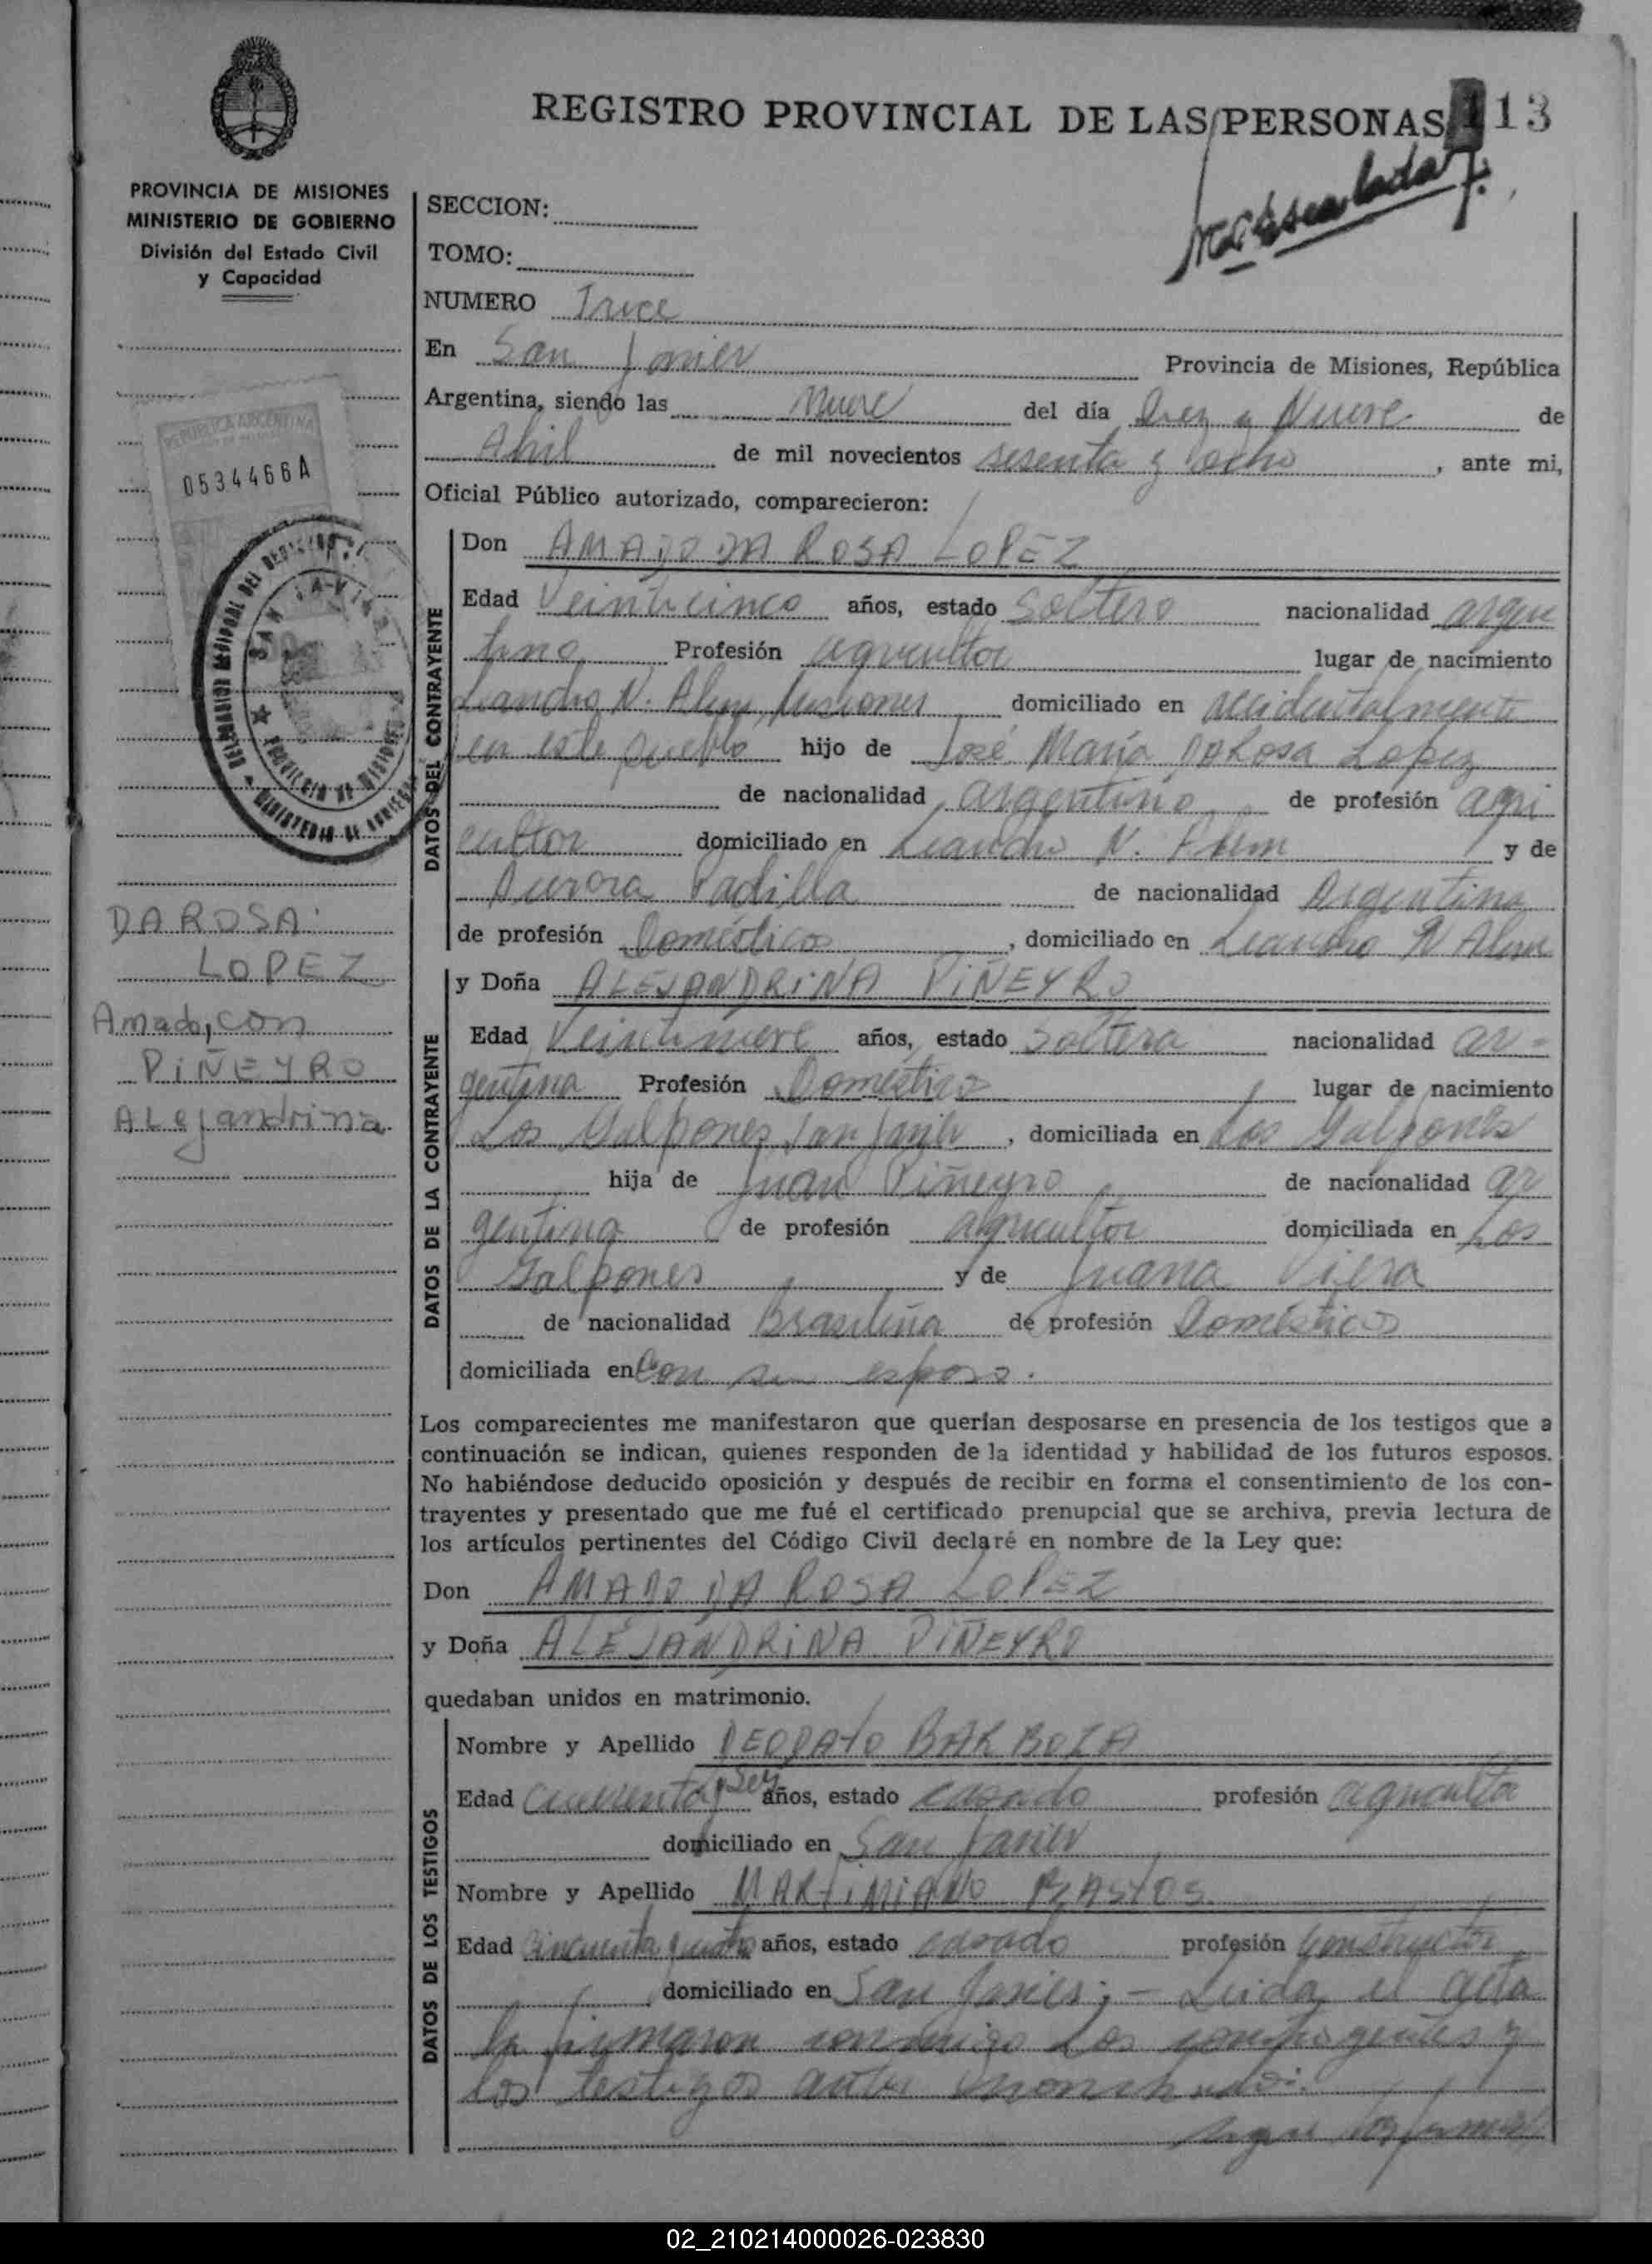 REGISTRO PROVINCIAL DE LAS PERSONAS 113
PROVINCIA DE MISIONES
MINISTERIO DE GOBIERNO
División del Estado Civil
y Capacidad
0534466A
DA ROSA
LOPEZ
Amado, con
PIÑEYRO
ALejandrina
SECCION:
TOMO:
NUMERO Trece
En San Javier Provincia de Misiones, República
Argentina, siendo las nueve del día Diez y Nueve de
Abril de mil novecientos sesenta y ocho, ante mi,
Oficial Público autorizado, comparecieron:
DATOS DEL CONTRAYENTE
Don AMADO DA ROSA LOPEZ
Edad Veinticinco años, estado Soltero nacionalidad argen
tino Profesión agricultor lugar de nacimiento
Leandro N. Alem, Misiones domiciliado en accidentalmente
en este pueblo hijo de José María DA Rosa Lopez
de nacionalidad argentino de profesión agri
cultor domiciliado en Leandro N. Alem y de
Aurora Padilla de nacionalidad Argentina
de profesión Domésticos, domiciliado en Leandro N Alem
DATOS DE LA CONTRAYENTE
y Doña ALEJANDRINA PIÑEYRO
Edad Veintinueve años, estado Soltera nacionalidad ar-
gentina Profesión Domestico lugar de nacimiento
Los Galpones San Javier, domiciliada en Los Galpones
hija de Juan Piñeyro de nacionalidad ar
gentina de profesión agricultor domiciliada en Los
Galpones y de Juana Viera
de nacionalidad Brasileña de profesión Domésticos
domiciliada en Con su esposo.
Los comparecientes me manifestaron que querían desposarse en presencia de los testigos que a
continuación se indican, quienes responden de la identidad y habilidad de los futuros esposos.
No habiéndose deducido oposición y después de recibir en forma el consentimiento de los con-
trayentes y presentado que me fué el certificado prenupcial que se archiva, previa lectura de
los artículos pertinentes del Código Civil declaré en nombre de la Ley que:
Don AMADO DA ROSA LOPEZ
y Doña ALEJANDRINA PIÑEYRO
quedaban unidos en matrimonio.
DATOS DE LOS TESTIGOS
Nombre y Apellido DEODATO BARBOZA
Edad Cuarenta y Seis años, estado casado profesión agriculto
domiciliado en San Javier
Nombre y Apellido MARTIMIANO BASTOS
Edad Cincuenta cuatro años, estado casado profesión Constructor
domiciliado en San Javier; - Leida el acta
la firmaron conmigo los contrayentes y
los testigos antes
02_210214000026-023830